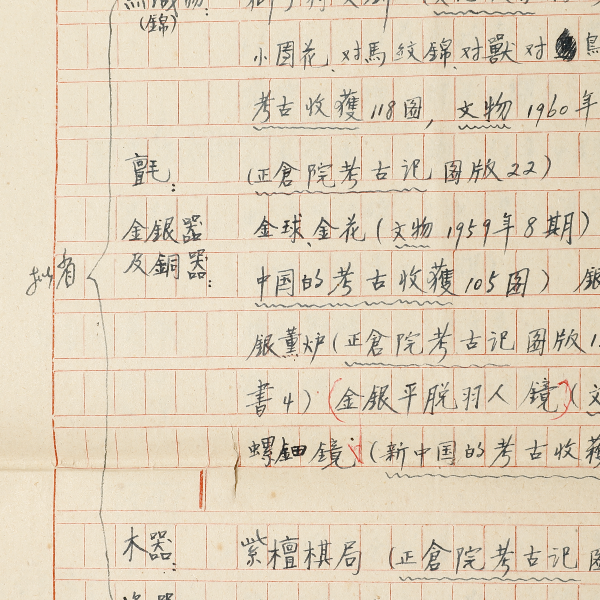 (錦)
小团花、对馬紋錦、对獸对鳥
考古收獲118图, 文物1960年
氈: (正倉院考古记图版22)
金銀器 金球、金花(文物1959年8期)
及銅器: 中国的考古收獲105图) 銀
拟省
銀薰炉(正倉院考古记图版
書4)(金銀平脱羽人鏡)(文
螺鈿鏡(新中国的考古收獲
木器: 紫檀棋局 (正倉院考古记图